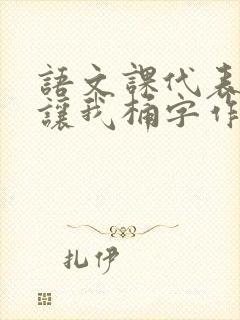 語文課代表
讓我桶字作
扎伊